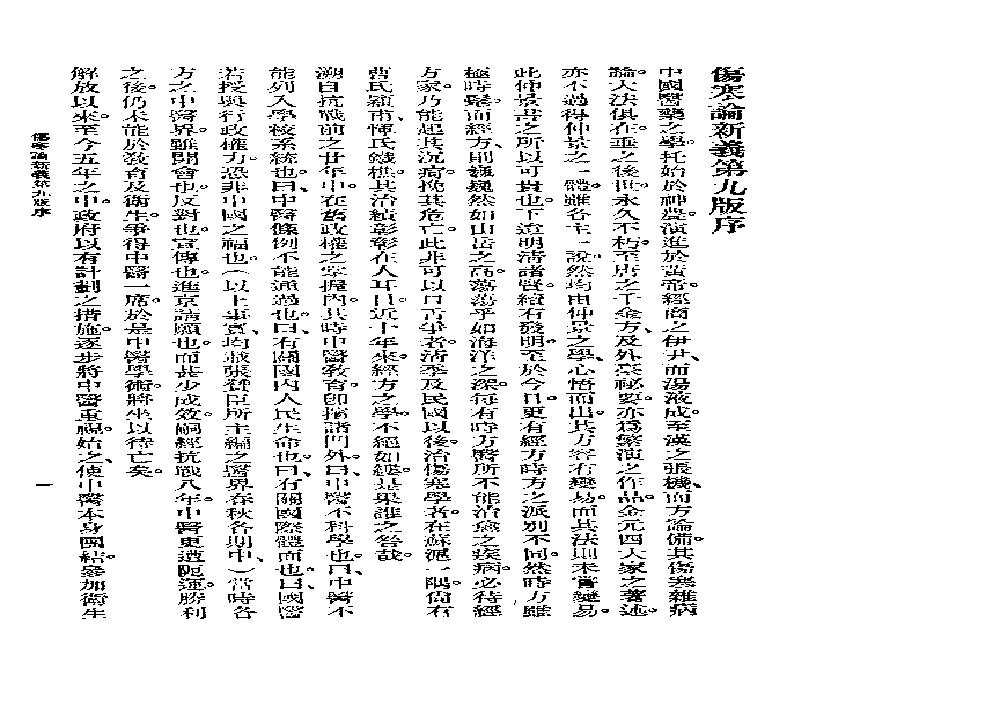 傷寒論新義第九版序
中國醫藥之學。托始於神農。演進於黃帝。經商之伊尹、而湯液成。至漢之張機、而方論備。其傷寒雜病
論。大法俱在。垂之後世。永久不朽。至唐之千金方、及外臺秘要。亦爲繁演之作品。金元四大家之著述。
亦不過得仲景之一體。雖各主一說。然均由仲景之學、心悟而出。其方容有變易。而其法則未嘗變易。
此仲景書之所以可貴也。下迨明清諸賢。續有發明。至於今日。更有經方時方之派別不同。然時方雖
極時髦。而經方、則巍巍然如山岳之高。蕩蕩乎如海洋之深。每有時方醫所不能治愈之疾病。必待經
方家。乃能起其沉疴。挽其危亡。此非可以口舌爭者。清季及民國以後。治傷寒學者。在蘇滬一隅。尙有
曹氏穎甫、惲氏鐵樵。其治績彰彰在人耳目。近十年來。經方之學。不絕如縷。是果誰之咎哉。
溯自抗戰前之廿年中。在舊政權之掌握內。其時中醫敎育。卽擯諸門外。曰、中醫不科學也。曰、中醫不
能列入學校系統也。曰、中醫條例不能通過也。曰、有關國內人民生命也。曰、有關國際體面也。曰、國醫
若授與行政權力。恐非中國之福也。(以上事實、均載張贊臣所主編之醫界春秋各期中、)當時各
方之中醫界。雖開會也。反對也。宣傳也。進京請願也。而甚少成效。嗣經抗戰八年。中醫更遭阨運。勝利
之後。仍未能於敎育及衛生。爭得中醫一席。於是中醫學術。將坐以待亡矣。
解放以來。至今五年之中。政府以有計劃之措施。逐步將中醫重視。始之、使中醫本身團結。參加衛生
傷寒論新義第九版序
一